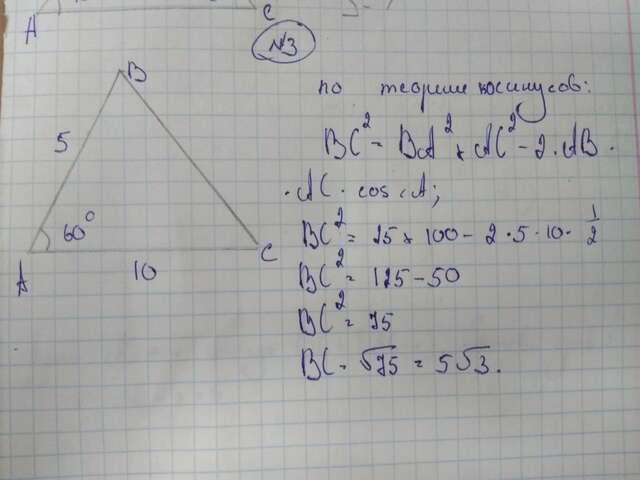 A C
№3
B
5
60°
A 10 C
по теореме косинусов:
BC² = BA² + AC² - 2 · AB ·
· AC · cos A;
BC² = 25 + 100 - 2 · 5 · 10 · 1/2
BC² = 125 - 50
BC² = 75
BC = √75 = 5√3.